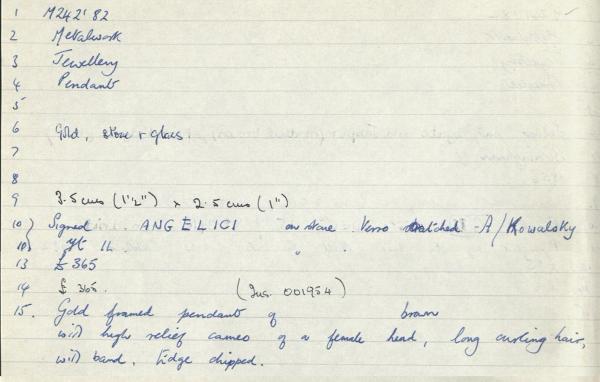 1 M242'82
2 Metalwork
3 Jewellery
4 Pendant
5
6 Gold, stone & glass.
7
8
9 3.5 cms (1'2") x 2.5 cms (1")
10) Signed ANGELICI on stone. Verso scratched A/Kowalsky
13 £365
14 £365. (Ins. 001954)
15. Gold framed pendant of brown
with high relief cameo of a female head, long curling hair,
with band. Edge chipped.